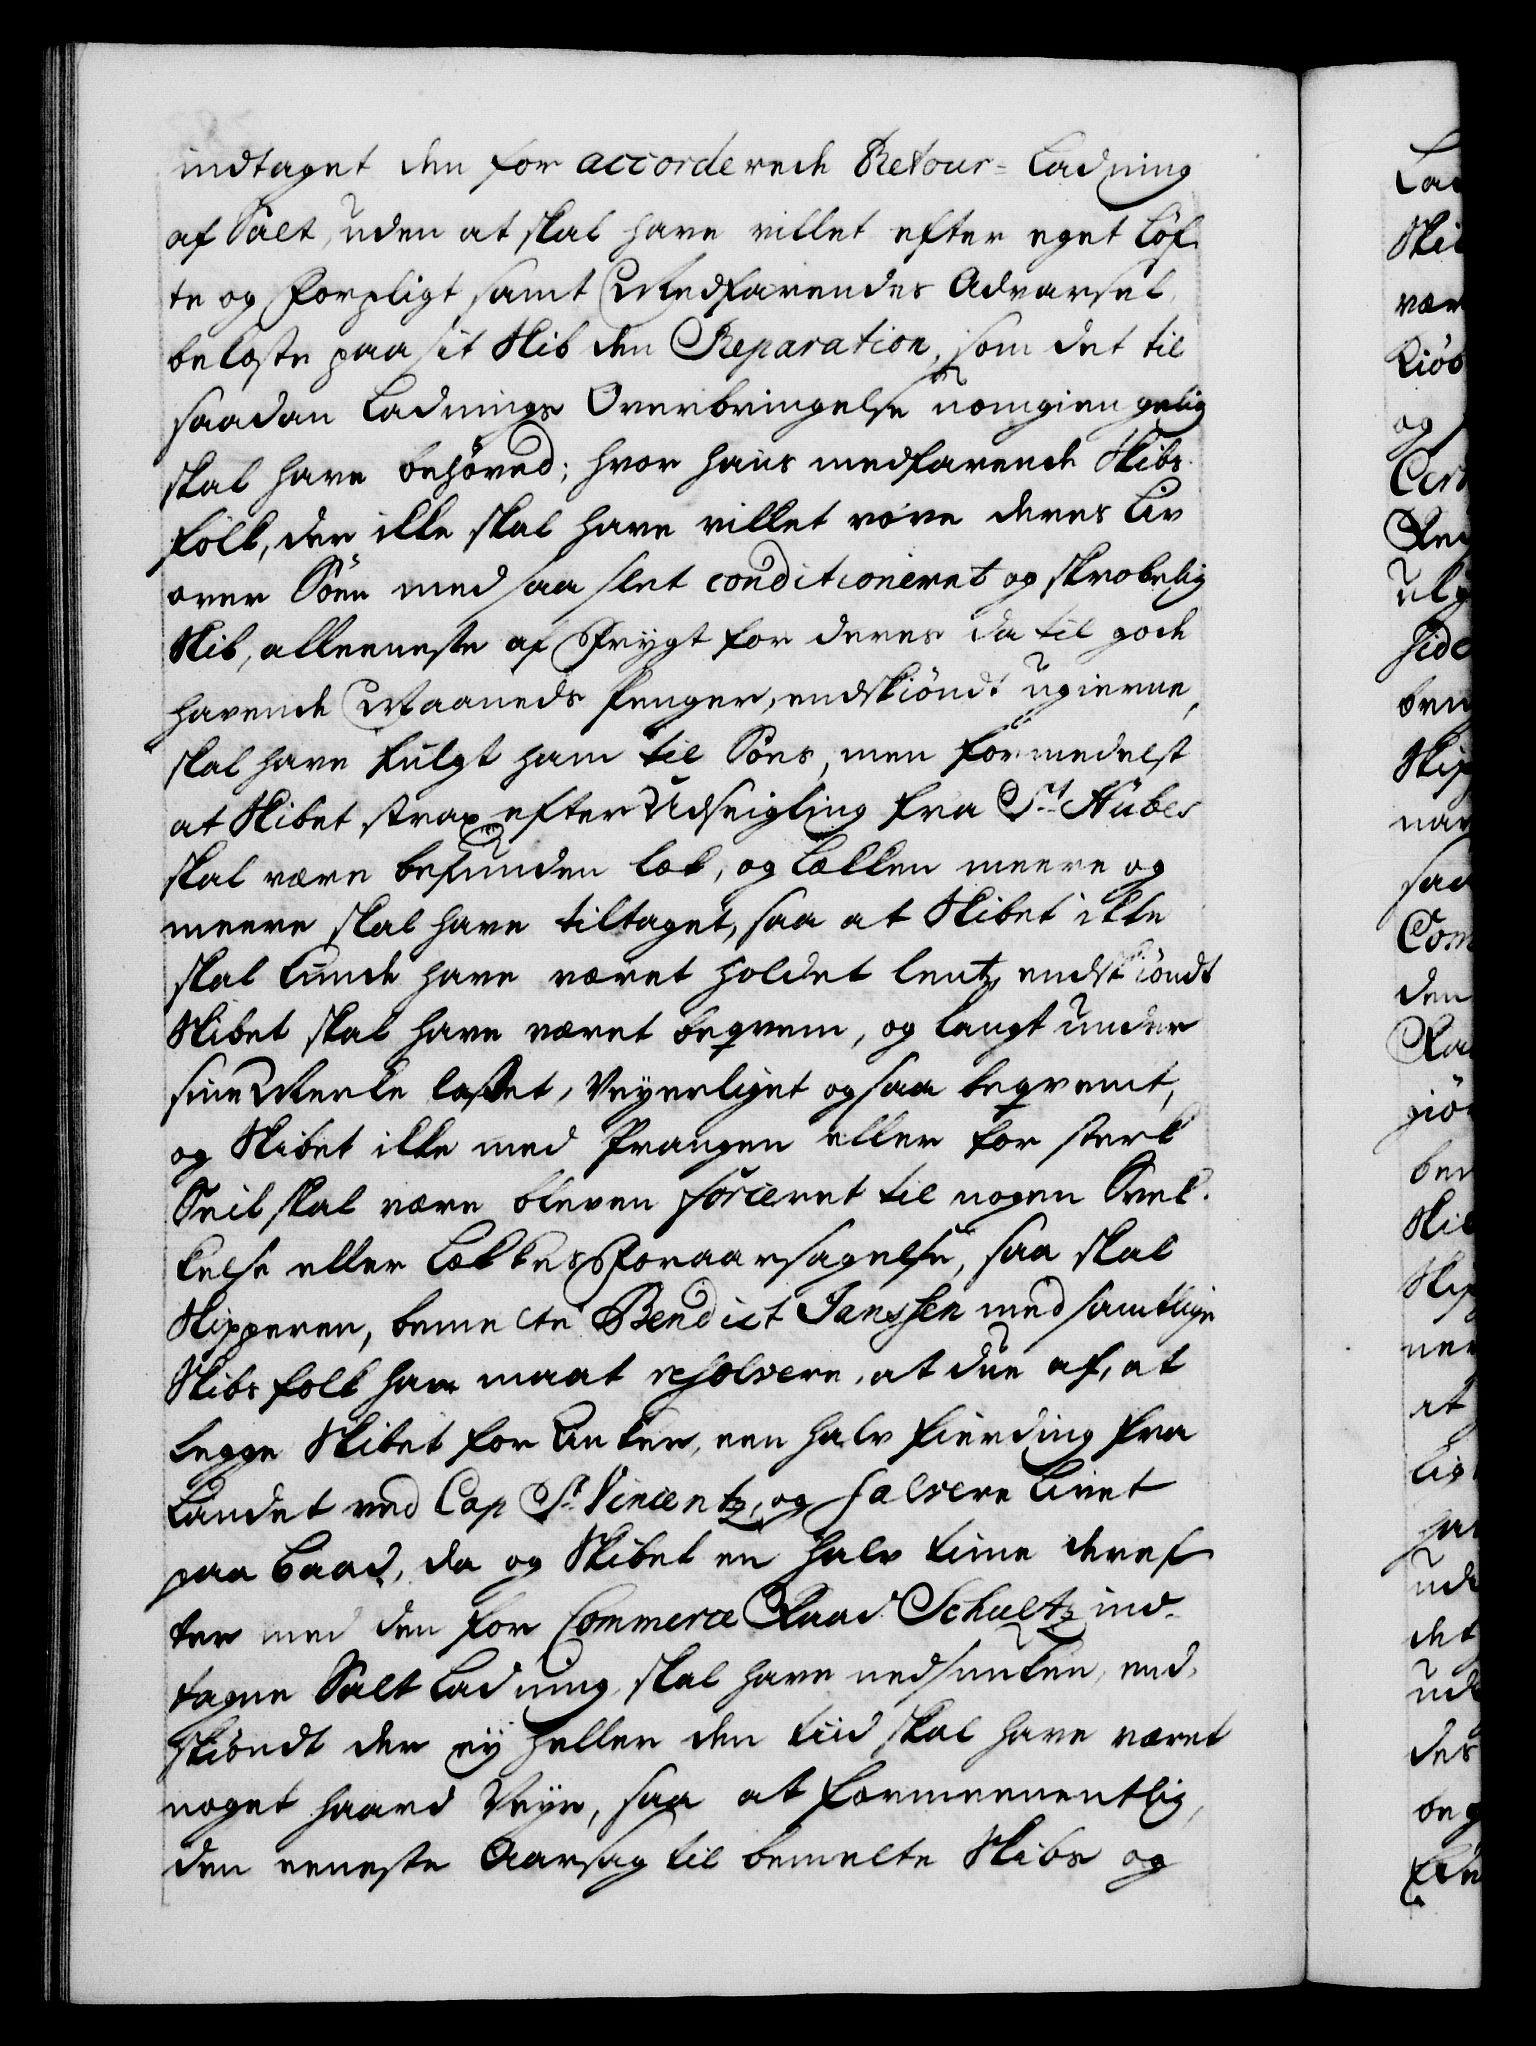 indtaget den for accorderede Retour-Ladning
af Salt, uden at skal have villet efter eget Løf-
te og Forpligt samt Medfarendes Advarsel,
bekoste paa sit Skib den Reparation, som det til
saadan Ladnings Overbringelse uomgiengelig
skal have behøved; hvor hans medfarende Skibs-
folk, der ikke skal have villet vove deres Liv
over Søen med saa slet conditioneret og skrøbelig
Skib, alleeneste af Frygt for deres da til gode
havende Maaneds Penger, endskiöndt ugierne,
skal have fulgt ham til Søes, men formedelst
at Skibet strax efter Udseigling fra St. Hubes
skal være befunden læk, og Lækken meere og
meere skal have tiltaget, saa at Skibet ikke
skal kunde have været holdet lentz, endskiöndt
Skibet skal have været beqvem, og langt under
sine Merke lastet, Veyerliget ogsaa beqvemt,
og Skibet ikke med Prangen eller for sterk
Seil skal være bleven forceret til nogen Svek-
kelse eller Lækkes Foraarsagelse, saa skal
Skipperen, bemelte Bendict Janssen med samtlige
Skibsfolk have maat resolvere, at due af, at
legge Skibet for Anker, een halv Fierding fra
Landet ved Cap St. Vincentz, og salvere Livet
paa Baad, da og Skibet en halv time deref-
ter med den for Commerce Raad Schultz ind-
tagne Salt Ladning skal have nedsunken, end-
skiöndt der ey heller den tiid skal have været
noget haard Veyr, saa at formeenentlig,
den eeneste Aarsag til bemelte Skibs og